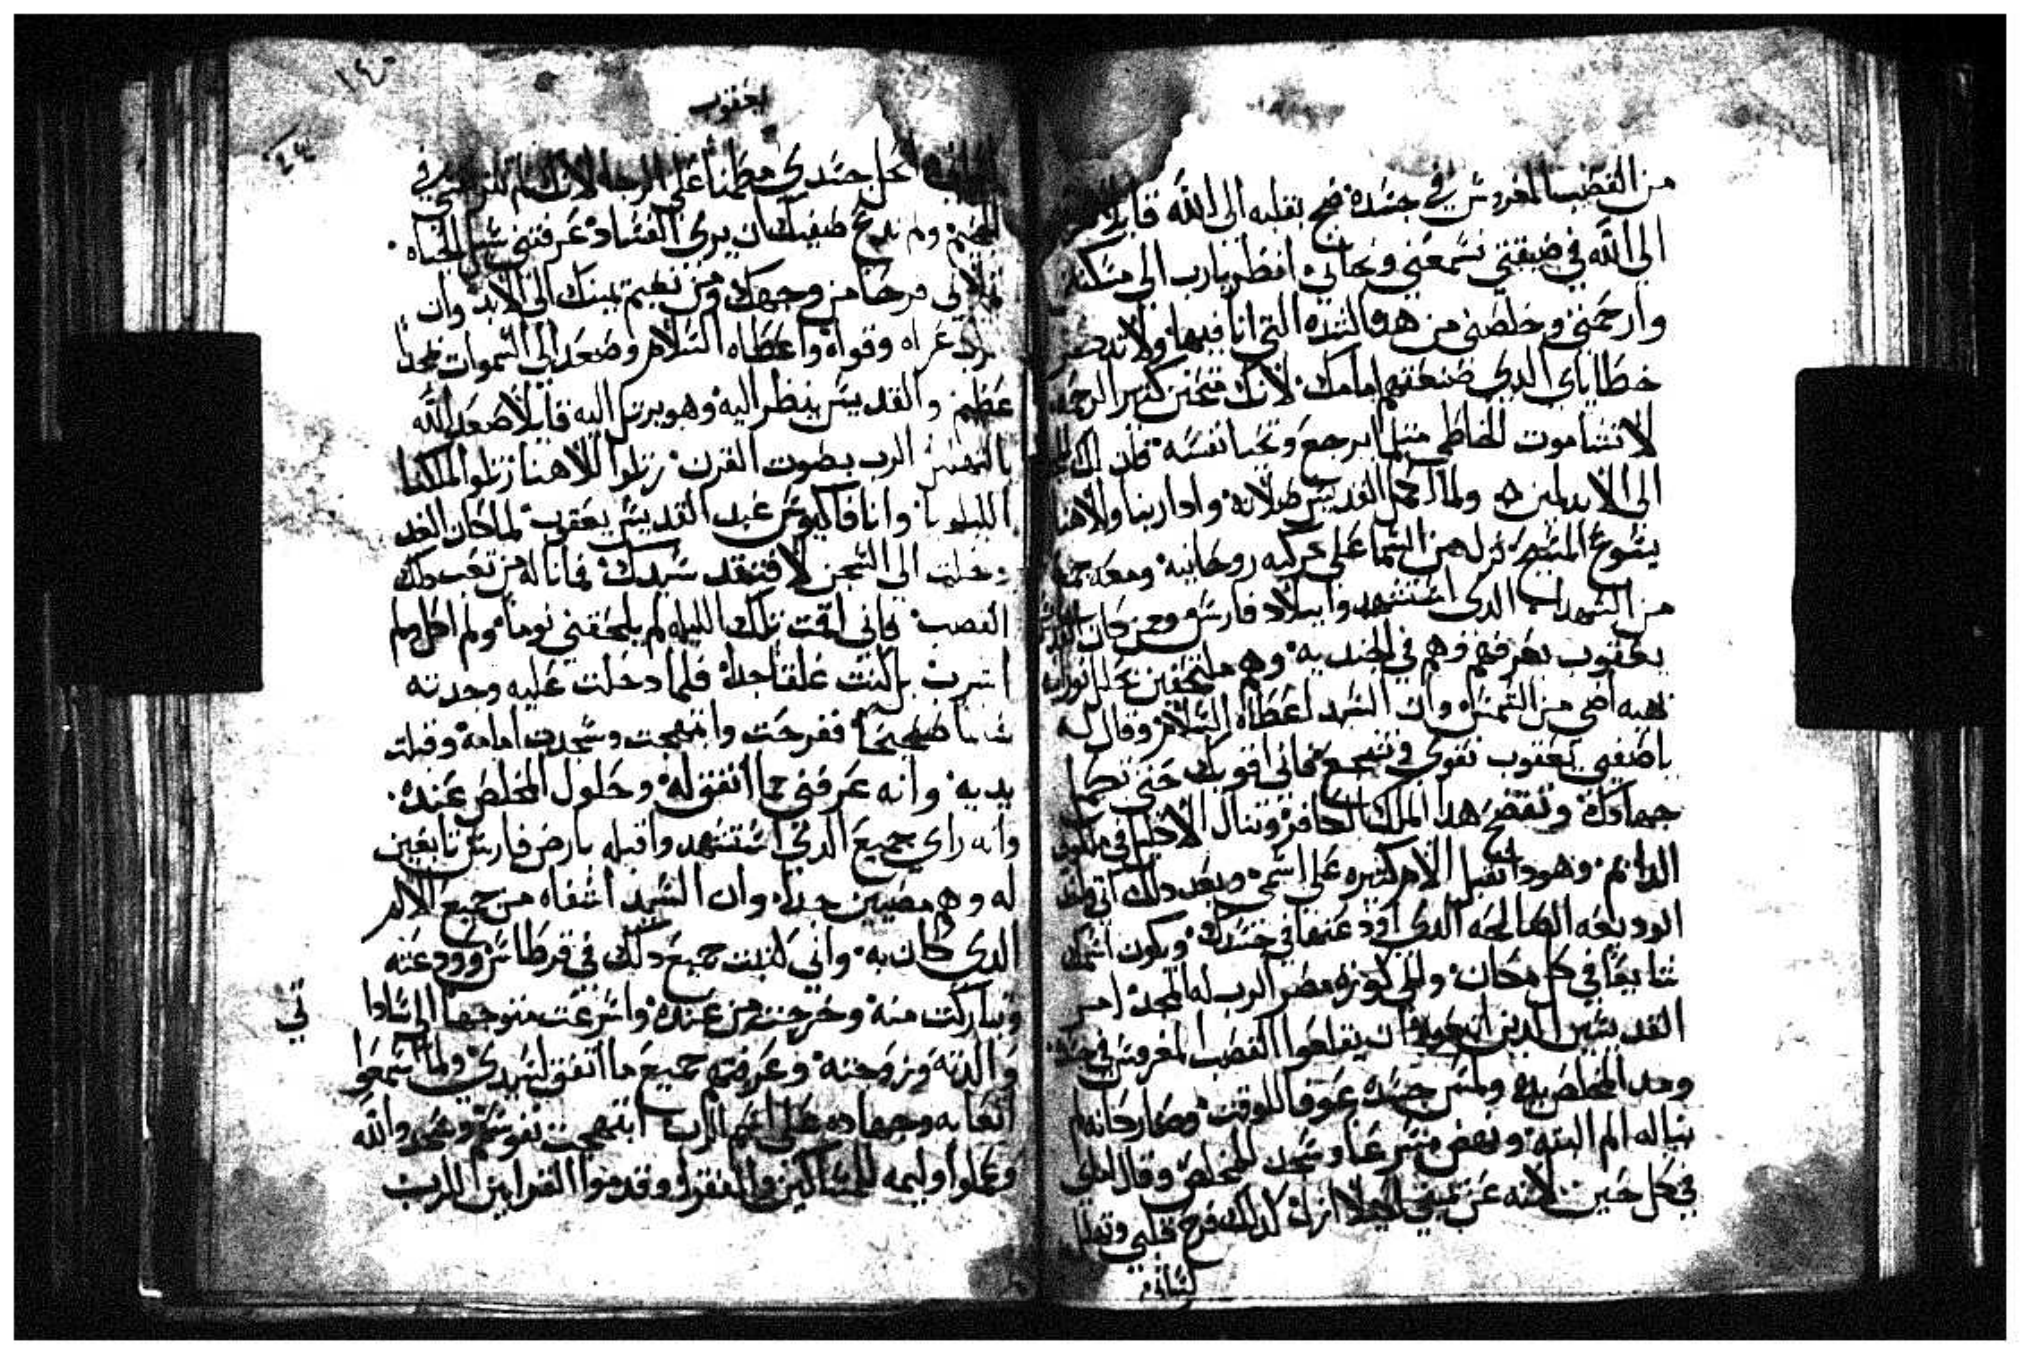 من القصب المغروس في جسده ضج بقلبه الى الله قايلا
الى الله في ضيقتي تسمعني ونجاني انظر يارب الى مسكنتي
وارحمني وخلصني من هده الشده التي انا فيها ولا تدكر
خطاياي الدي صنعتهم امامك لانك متحنن كتير الرحمه
لا تشا موت الخاطي متلما يرجع وتحيا نفسه فان لك
الى الابد امين ولما اكمل القديس صلاته وادا ربنا والاهنا
يسوع المسيح نزل من السما على مركبه روحانيه ومعه جميع
من الشهدا الدي استشهدوا ببلاد فارس ومن كان القديس
يعقوب يعرفهم وهم في الجنديه وهم ملتحفين بحلل نورانيه
بهيه اضى من الشمس وان السيد اعطاه السلام وقال له
ياصفيي يعقوب تقوى وتشجع فاني اقويك حتى تكمل
جهادك وتفضح هدا الملك الكافر وتنال الاكليل في ملكوتي
الدايم وهودا تقبل الام كتيره على اسمي وبعد دلك اتي واخد
الوديعه الصالحه الدي اودعتها في جسدك ويكون اسمك
شايعا في كل مكان والى كورة مصر الرب له المجد امر
القديسين الدين اتبعوه ان يقلعوا القصب المغروس في جسده
ومد المخلص يده ولمس جسده عوفا للوقت وصار كانه لم
يناله الم البته ونهض مسرعا وسجد للمخلص وقال امامي
في كل حين لانه عن يميني لكيلا ازل لدلك فرح قلبي وتهلل
لساني
يعقوب
١٤٠
٤٤
يحل جسدي مطمنا على الرجا لانك لم تترك نفسي في
الجحيم ولم تدع صفيك ان يرى الفساد عرفتني سبل الحياه
تملاني فرحا من وجهك ومن نعيم يمينك الى الابد وان
الرب عزاه وقواه واعطاه السلام وصعد الى السموات بمجدا
عظيم والقديس ينظر اليه وهو يرتل اليه قايلا صعد الله
بالتهليل الرب بصوت القرن رتلوا لالاهنا رتلوا لملكنا
الليلويا وانا فاكيوس عبد القديس يعقوب لما كان الغد
دخلت الى السجن لافتقد سيدك فما ناله من تعب دلك
القصب فاني اقمت تلك الليله لم يلحقني نوما ولم اكل ولم
اشرب بل كنت قلقا جدا فلما دخلت عليه وجدته
شابا صحيحا ففرحت وابتهجت وسجدت امامه وقبلت
يديه وانه عرفني بما اتفق له وحلول المخلص عنده
وانه راي جميع الدي استشهدوا قبله بارض فارس تابعين
له وهم مضيين جدا وان السيد اشفاه من جميع الالام
الدي كان به واني كتبت جميع دلك في قرطاس وودعته
وتباركت منه وخرجت من عنده واسرعت متوجها الى سادا
تي
والدته وزوجته وعرفتهم جميع ما اتفق لسيدي ولما سمعوا
اتعابه وجهاده على اسم الرب ابتهجت نفوسهم ومجدوا الله
وعملوا وليمه للمساكين والفقرا وقدموا القرابين للرب